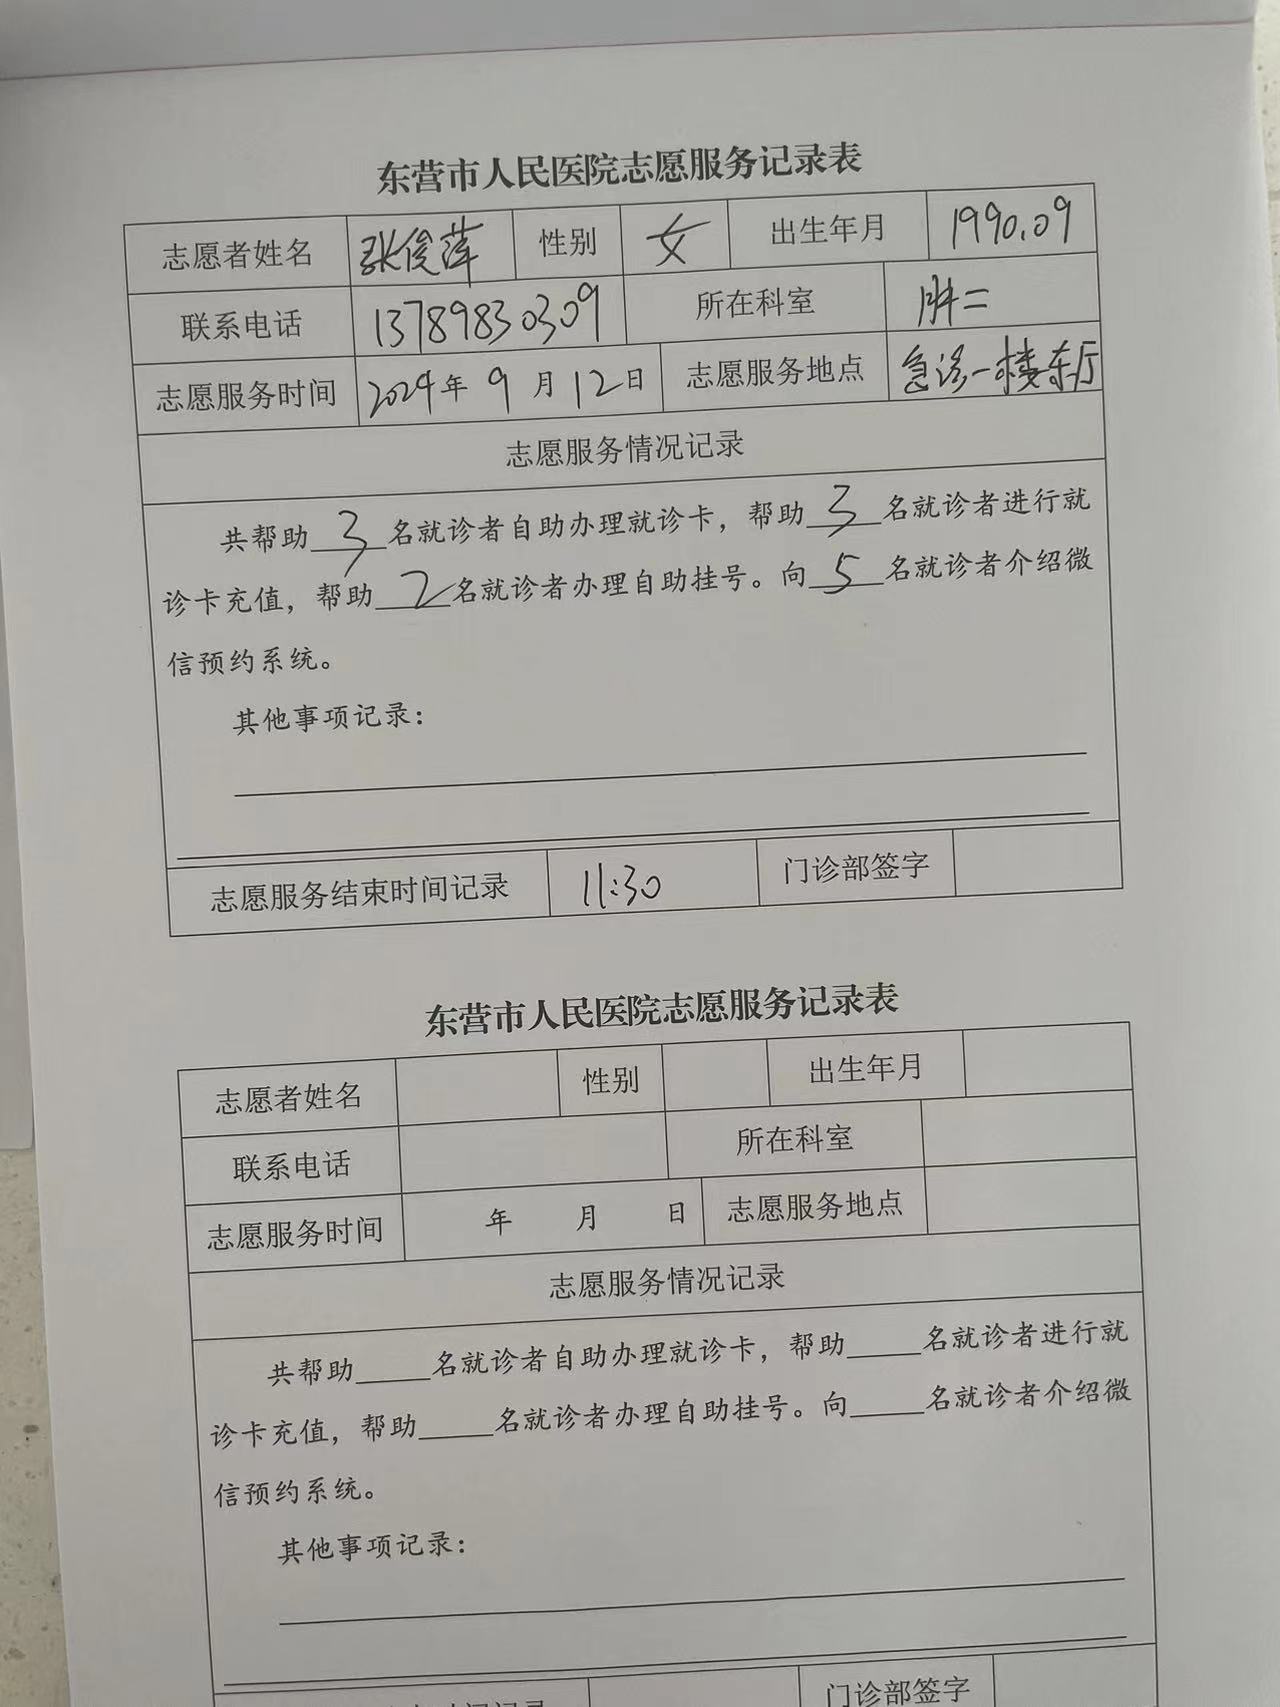 东营市人民医院志愿服务记录表
志愿者姓名 张俊萍 性别 女 出生年月 1990.09
联系电话 13789830309 所在科室 肿二
志愿服务时间 2024年 9 月 12 日 志愿服务地点 急诊一楼东厅
志愿服务情况记录
共帮助 3 名就诊者自助办理就诊卡，帮助 3 名就诊者进行就
诊卡充值，帮助 2 名就诊者办理自助挂号。向 5 名就诊者介绍微
信预约系统。
其他事项记录：
志愿服务结束时间记录 11:30 门诊部签字
东营市人民医院志愿服务记录表
志愿者姓名 性别 出生年月
联系电话 所在科室
志愿服务时间 年 月 日 志愿服务地点
志愿服务情况记录
共帮助_____名就诊者自助办理就诊卡，帮助_____名就诊者进行就
诊卡充值，帮助_____名就诊者办理自助挂号。向_____名就诊者介绍微
信预约系统。
其他事项记录：
门诊部签字